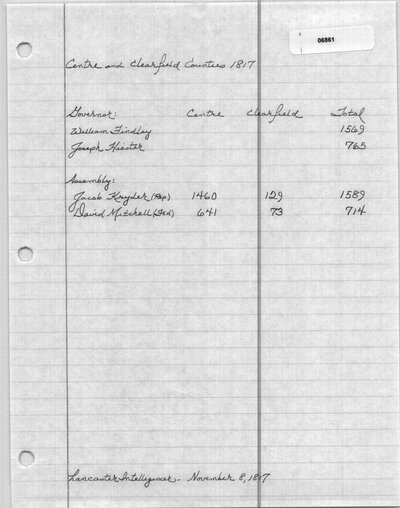 06861
Centre and Clearfield Counties 1817
Governor: Centre Clearfield Total
William Findlay 1569
Joseph Hiester 765
Assembly:
Jacob Kryder (Rep) 1460 129 1589
David Mitchell (Fed) 641 73 714
Lancaster Intelligencer. November 8, 1817